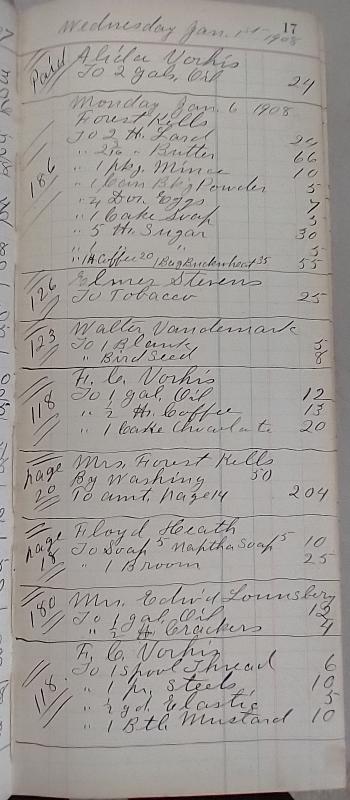 Wednesday Jan. 1st 1908 17
Paid Alida Vorhis
To 2 gals. Oil 24
Monday Jan. 6 1908
Forest Kells
To 2 lt. Lard
" Butter 66
" 1 pkg. Mince 10
186 " 1 Can Bkg Powder 5
" Doz. Eggs
" 1 Cake Soap 5
" 5 lt. Sugar 30
5
" 1 lt Coffee 20 1 Bag Buckwheat 35 55
126 Elmer Stevens
To Tobacco 25
123 Walter Vandemark
To 1 Blank 5
" Bird Seed 8
F. C. Vorhis
118 To 1 gal. Oil 12
" ½ lt. Coffee 13
" 1 Cake Chocolate 20
page Mrs. Forest Kells
20 By Washing 50
To amt. page 14 204
page Floyd Heath
18 To Soap 5 Naptha Soap 5 10
" 1 Broom 25
180 Mrs. Edw'd Lounsbery
To 1 gal. Oil 12
" ½ lt. Crackers 4
F. C. Vorhis
118 To 1 Spool Thread 6
" 1 pr. Steels 10
" ½ yd. Elastic 5
" 1 Btl. Mustard 10